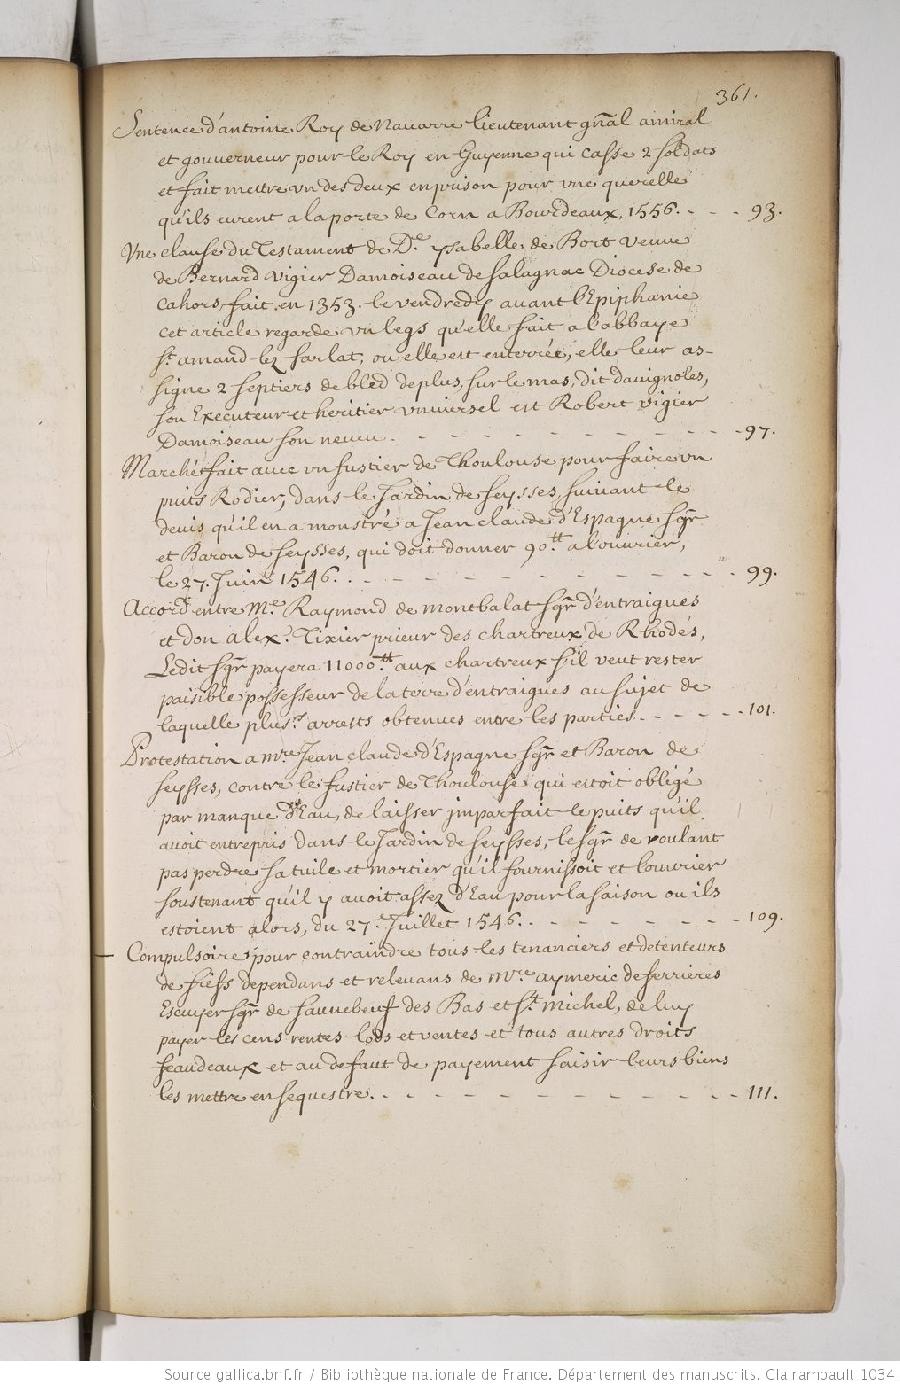 361.
Sentence d'antoine Roy de Navarre lieutenant gñal amiral
et gouverneur pour le Roy en Guyenne qui casse 2 soldats
et fait mettre vn des deux en prison pour vne querelle
qu'ils eurent a la porte de Corn a Bourdeaux, 1556. - - - 93.
Vne clause du Testament de D.e ysabelle de Bort veuue
de Bernard vigier Damoiseau de Salagnac Diocese de
Cahors, fait en 1353. le vendredy auant l'Epiphanie
cet article regarde vn legs qu'elle fait a l'abbaye
St. amand lez sarlat, ou elle est enterrée, elle leur as-
signe 2 septiers de bled de plus, sur le mas, dit dauignoles,
son Executeur et heritier vniuersel est Robert vigier
Damoiseau son neueu. - - - - - - - - - - 97.
Marché fait auec vn fustier de Thoulouse pour faire vn
puits Rodier, dans le Jardin de seysses, suiuant le
deuis qu'il en a monstré a Jean claude d'Espagne sgr
et Baron de seysses, qui doit donner 90.tt a l'ouurier,
le 27. Juin 1546. - - - - - - - - - - 99.
Accord entre Mre. Raymond de montbalat sgr d'entraigues
et don alex. Tixier prieur des chartreux de Rhodés,
Ledit sgr payera 11000.tt aux chartreux s'il veut rester
paisible possesseur de la terre d'entraigues au sujet de
laquelle plusrs. arrests obtenues entre les parties. - - - - 101.
Protestation a mre. Jean claude d'Espagne sgr et Baron de
seysses, contre le fustier de Thoulouse qui estoit obligé
par manque d'Eau, de laisser jmparfait le puits qu'il
auoit entrepris dans le Jardin de seysses, le sgr ne voulant
pas perdre sa tuile et mortier qu'il fournissoit et l'ouurier
soustenant qu'il y auoit assez d'Eau pour la saison ou ils
estoient alors, du 27. Juillet 1546. - - - - - - - 109.
Compulsoire pour contraindre tous les tenanciers et detenteurs
de fiefs dependans et releuans de mre. aymeric de ferrieres
Escuyer sgr de sauuebeuf des Bas et st. michel, de luy
payer les cens rentes lods et ventes et tous autres droits
feaudeaux et au defaut de payement saisir leurs biens
les mettre en sequestre. - - - - - - - - - - 111.
Source gallica.bnf.fr / Bibliothèque nationale de France. Département des manuscrits. Clairambault 1034